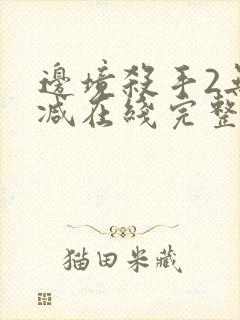 邊境殺手2無
減在綫完整
猫田米藏